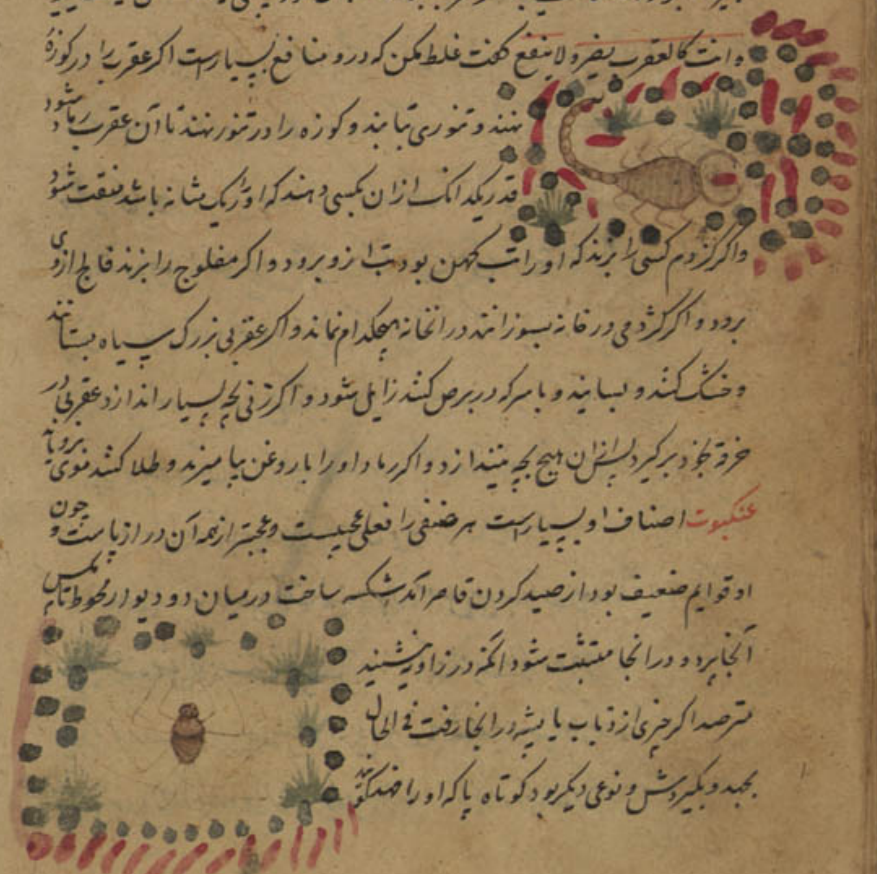 و انت كالعقرب يضر و لا ينفع گفت غلط مكن كه درو منافع بسيارست اكر عقرب را در كوزهٔ
نهند و تنوری تابند و كوزه را در تنور نهند تا آن عقرب رماد شود
قدر يكدانك ازان بكسی دهند كه او را ريك مثانه باشد منفتت شود
و اكر كژدم كسی را بزند كه او را تب كهن بود تب ازو برود و اكر مفلوج را بزند فالج ازوی
برود و اكر كژدمی در خانه بسوزانند در انخانه هيچكدام نماند و اكر عقربی بزرك سياه بستانند
و خشك كنند و بسايند و با سركه در برص كنند زايل شود و اكر زنی بچه بسيار اندازد عقربی در
خرقه بخود بركيرد پس ازان هيچ بچه نيندازد و اكر رماد او را با روغن بياميزند و طلا كنند موی بروياند
عنكبوت اصناف او بسيارست هر صنفی را فعلی عجيبست و عجبتر از همه آن دراز پاست و چون
او قوايم ضعيف بود از صيد كردن قاصر آمد شبكه ساخت در ميان دو ديوار مخوط تا مكس
آنجا پرد و در انجا متشبث شود انكه در زاويه نشيند
مترصد اكر چيزی از ذباب يا پشه در انجا رفت فی الحال
بجهد و بكيردش و نوعی ديكر بود كوتاه پا كه او را فهد كويند